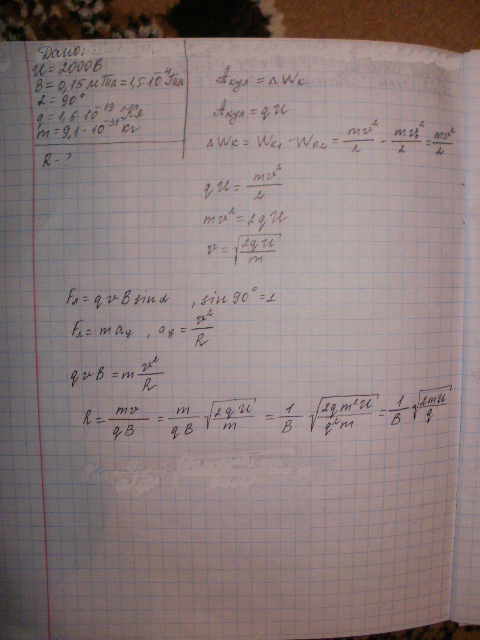 Дано:
U = 2000В
B = 0,15 мТл = 1,5·10⁻⁴ Тл
α = 90°
q = 1,6·10⁻¹⁹ Кл
m = 9,1·10⁻³¹ кг
R - ?
Aкул = ΔWк
Aкул = qU
ΔWк = Wк₁ - Wк₂ = mv²/2 - mv₀²/2 = mv²/2
qU = mv²/2
mv² = 2qU
v = √(2qU/m)
Fл = qvB sinα , sin 90° = 1
Fл = maц , aц = v²/R
qvB = m v²/R
R = mv/qB = m/qB √(2qU/m) = 1/B √(2qm²U/q²m) = 1/B √(2mU/q)